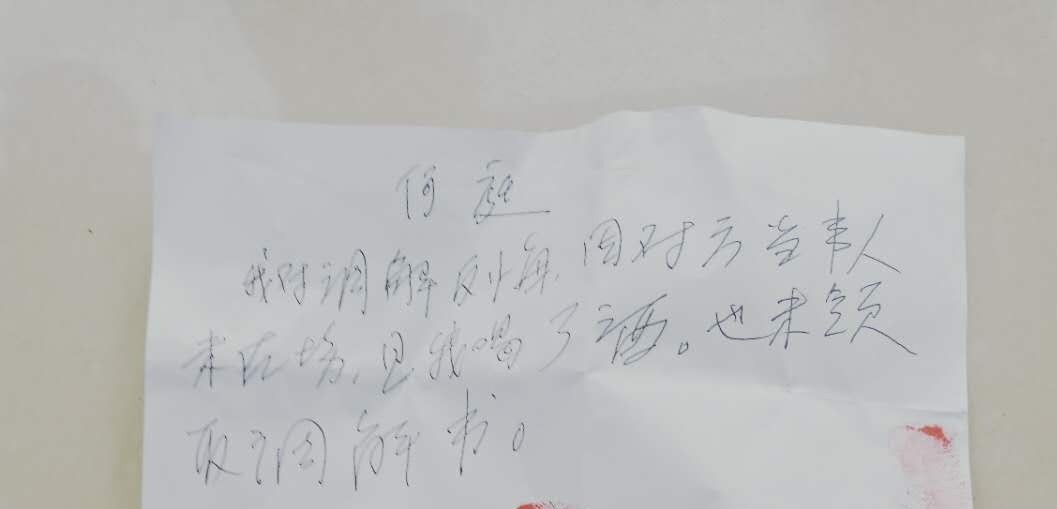 何庭
我对调解反悔,因对方当事人
未在场,且我喝了酒。也未领
取调解书。